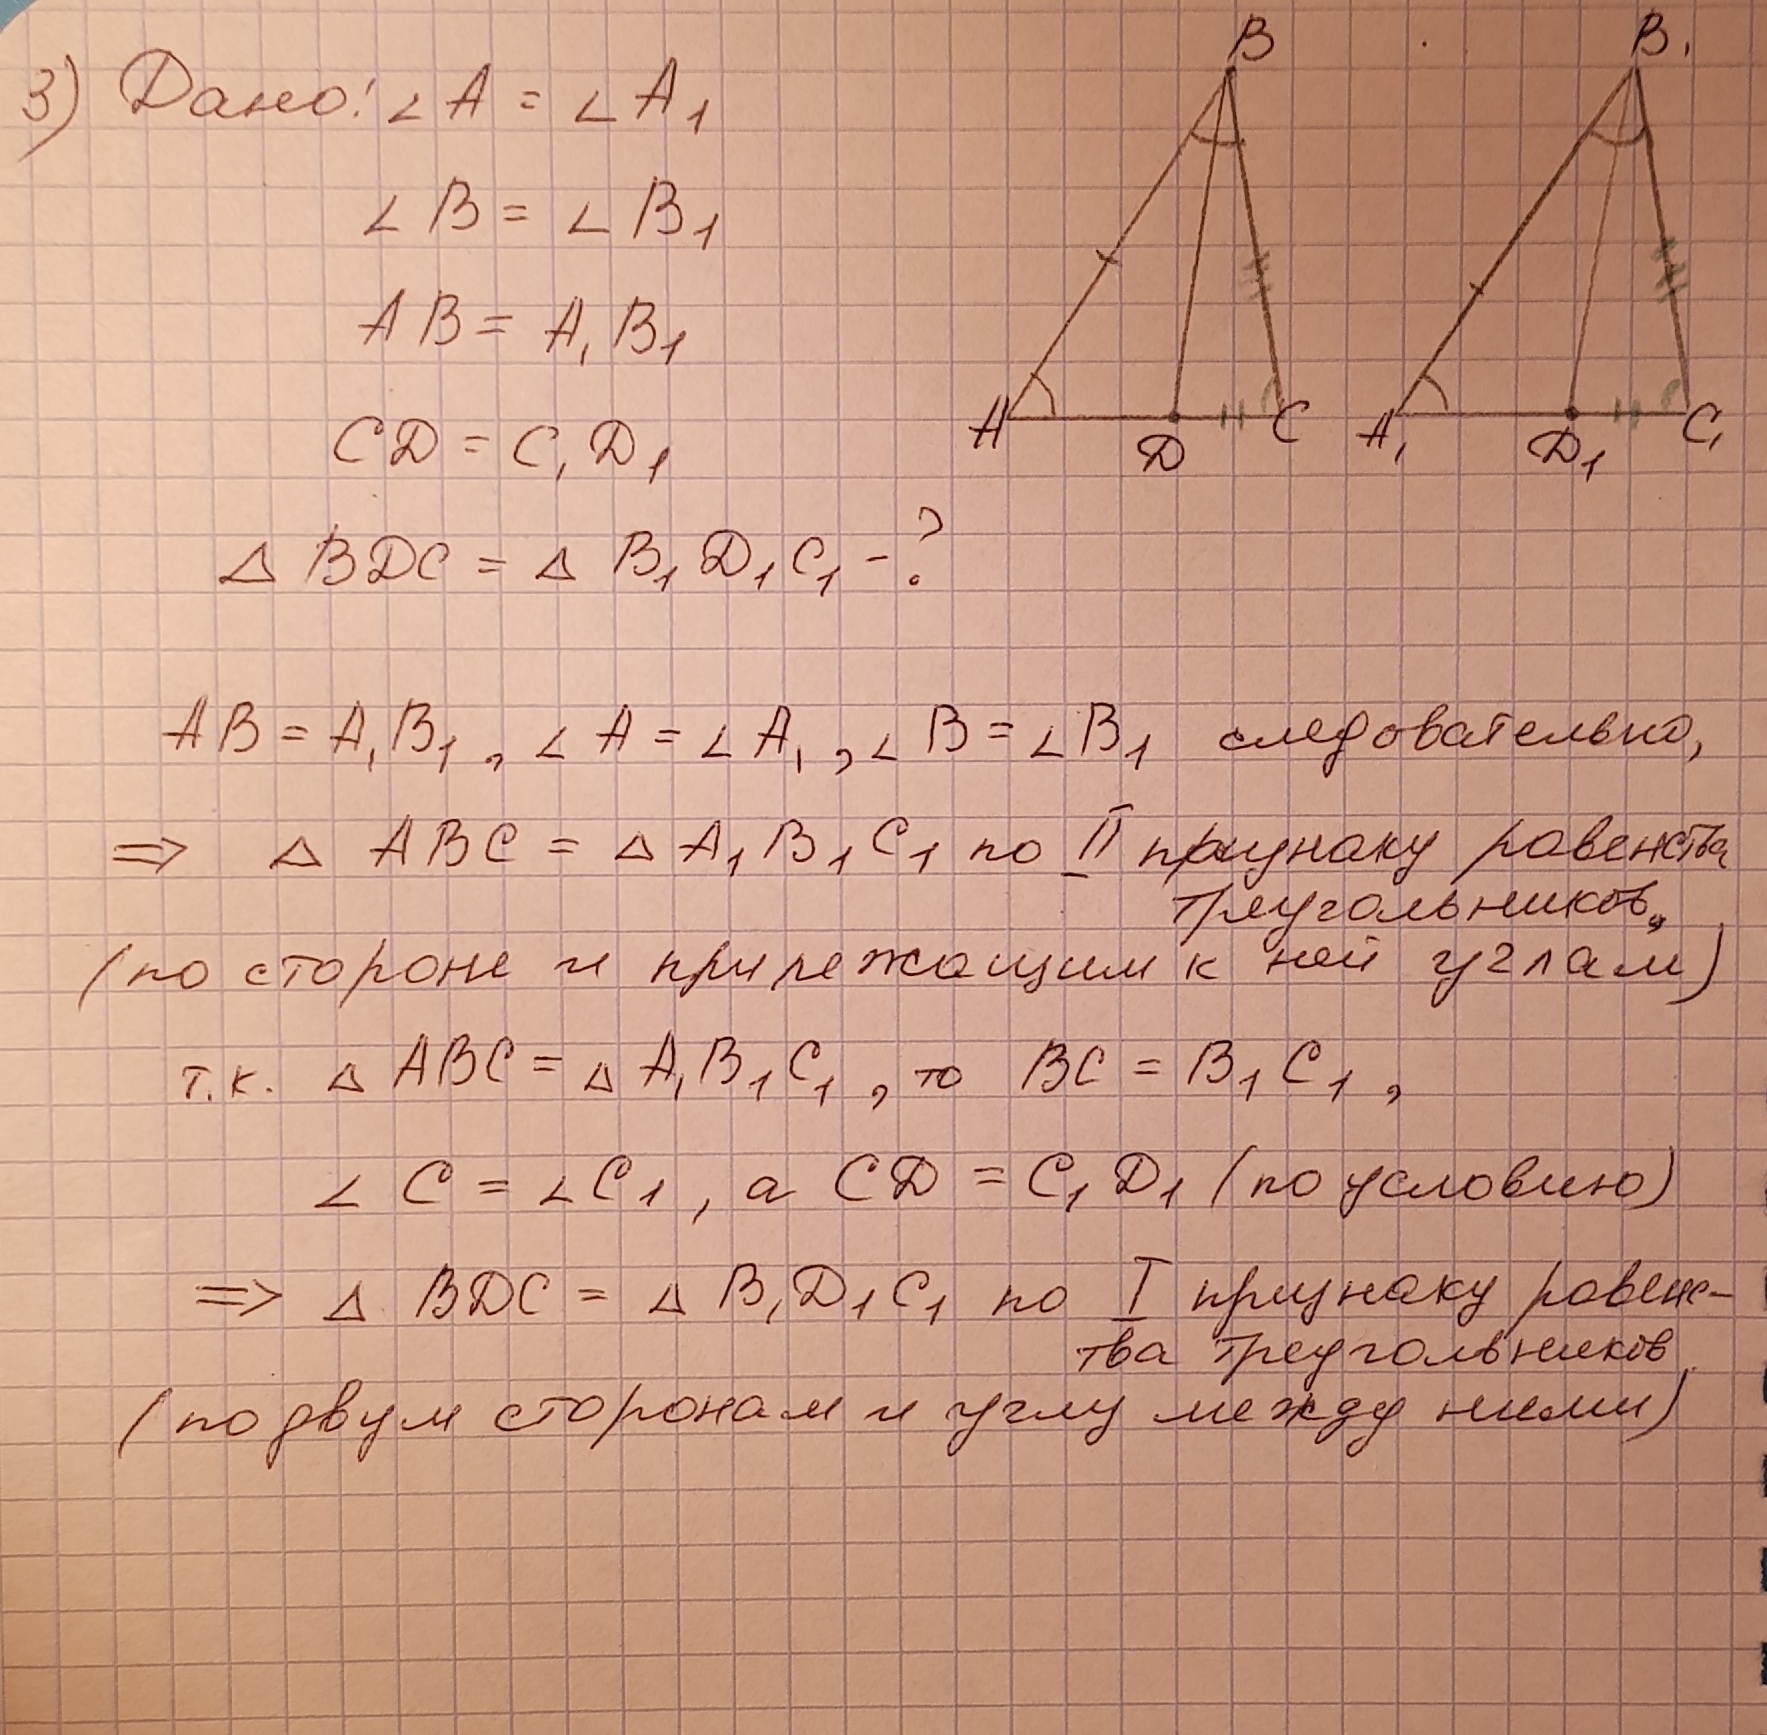 3) Дано: ∠A = ∠A₁
∠B = ∠B₁
AB = A₁B₁
CD = C₁D₁
△ BDC = △ B₁D₁C₁ - ?
B
A
D
C
B₁
A₁
D₁
C₁
AB = A₁B₁, ∠A = ∠A₁, ∠B = ∠B₁ следовательно,
⇒ △ ABC = △ A₁B₁C₁ по II признаку равенства
треугольников,
(по стороне и прилежащим к ней углам)
т.к. △ ABC = △ A₁B₁C₁, то BC = B₁C₁,
∠C = ∠C₁, а CD = C₁D₁ (по условию)
⇒ △ BDC = △ B₁D₁C₁ по I признаку равенс-
тва треугольников
(по двум сторонам и углу между ними)